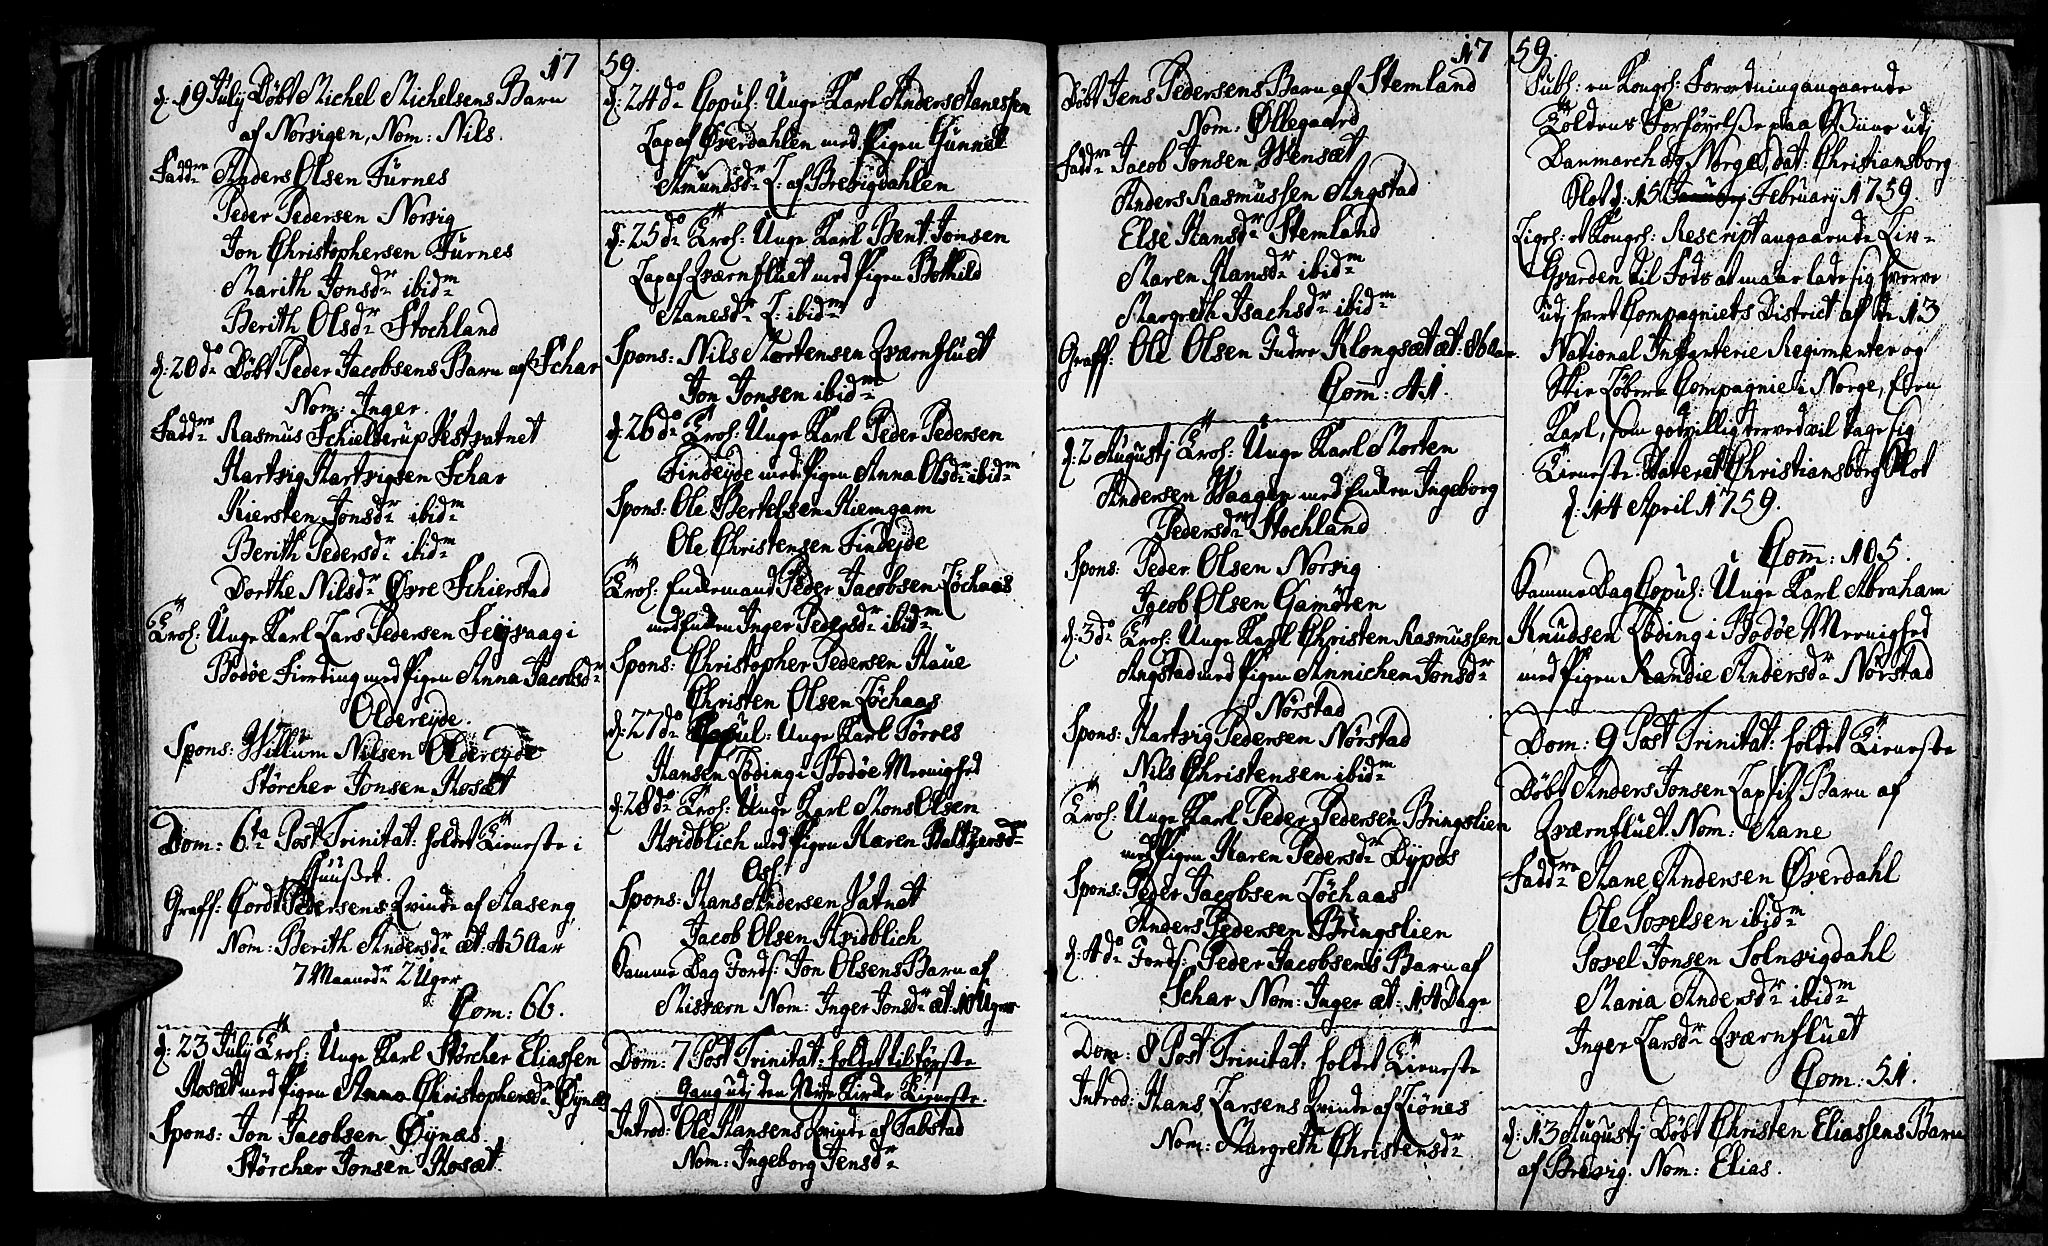 17
d: 19 July Döbt Michel Michelsens Barn
af Norvigen, Nom: Nils.
Faddre Anders Olsen Furnes
Peder Pedersen Norvig
Jon Christophersen Furnes
Marith Jonsdr ibidm
Berith Olsdr Stochland
d: 20do Döbt Peder Jacobsens Barn af Schar
Nom: Inger.
Faddre Rasmus Schielderup Vestvatnet
Hartvig Hartvigsen Schar
Kiersten Jonsdr ibidm
Berith Pedersdr ibidm
Dorthe Nilsdr Øvre Schierstad
Trol: Unge Karl Lars Pedersen Seyvaag i
Bodöe Fierding med Pigen Anna Jacobsdr
Oldereyde.
Spons: Willum Nilsen Oldereyde
Störcher Jonsen Hosæt
Dom: 6ta Post Trinitat: holdet Tieneste i
Huuset.
Graff: Cordt Pedersens Qvinde af Aaseng
Nom: Berith Andersdr æt: 45 Aar
7 Maanedr 2 Uger
Com: 66.
d: 23 July Trol: Unge Karl Störcher Eliassen
Hosæt med Pigen Anna Christophersdr Öynæs
Spons: Jon Jacobsen Öynæs
Störcher Jonsen Hosæt.
59.
d: 24do Copul: Unge Karl Anders Aanessen
Lap af Øverdahlen med Pigen Gunnil
Amundsdr L: af Brevigdahlen
d: 25do Trol: Unge Karl Bent Jonsen
Lap af Qværnfluet med Pigen Bothild
Aanesdr L: ibidm
Spons: Nils Mortensen Qværnfluet
Jon Jonsen ibidm
d: 26do Trol: Unge Karl Peder Pedersen
Findeyde med Pigen Anna Olsdr ibidm
Spons: Ole Bertelsen Kiemgam
Ole Christensen Findejde
Trol: Enkemand Peder Jacobsen Löchaas
med Enken Inger Pedersdr ibidm
Spons: Christopher Pedersen Haue
Christen Olsen Löchaas
d: 27do Copul: Unge Karl Törres
Hansen Löding i Bodöe Menighed
d: 28do Trol: Unge Karl Mons Olsen
Hvidblich med Pigen Karen Baltzersdr
Os:
Spons: Hans Andersen Vatnet
Jacob Olsen Hvidblich
Samme Dag Jords: Jon Olsens Barn af
Misværn Nom: Inger Jonsdr æt: 10 Uger
Dom: 7 Post Trinitat: holdet til förste
Gang udj den Nye Kirke Tieneste.
Introd: Ole Hansens Qvinde af Tabstad
Nom: Ingeborg Jensdr
17
Döbt Jens Pedersens Barn af Stemland
Nom: Øllegaard
Faddre Jacob Jonsen Wensæt
Anders Rasmussen Angstad
Else Hansdr Stemland
Maren Hansdr ibidm
Margreth Isachsdr ibidm
Graff: Ole Olsen Indre Klongsæt æt: 86 Aar
Com: 41.
d: 2 Augustj Trol: Unge Karl Morten
Andersen Waagen med Enken Ingeborg
Pedersdr Stochland
Spons: Peder Olsen Norvig
Jacob Olsen Gamören
d: 3do Trol: Unge Karl Christen Rasmussen
Angstad med Pigen Annichen Jonsdr
Nörstad
Spons: Hartvig Pedersen Nörstad
Nils Christensen ibidm
Trol: Unge Karl Peder Pedersen Bringslien
med Pigen Karen Pedersdr Dypos
Spons: Peder Jacobsen Löchaas
Anders Pedersen Bringslien
d: 4do Jords: Peder Jacobsens Barn af
Schar Nom: Inger æt: 14 Dage
Dom: 8 Post Trinitat: holdet Tieneste
Introd: Hans Larsens Qvinde af Liönes
Nom: Margreth Christensdr
59.
Publ: en Kongel: Forordning angaaende
Toldens Forhöyelse paa Viine udj
Danmarch og Norge, dat: Christiansborg
Slot d: 15 February 1759.
Ligel: et Kongel: Rescript angaaende Liv-
Garden til Fods at maae lade sig hverve
udj hvert Compagniets District af de 13
National Infanterie Regimenter og
Skie Löber Compagnie i Norge, een
Karl, som godvillig derved vil tage sig
Tieneste. Dateret Christiansborg Slot
d: 14 April 1759.
Com: 105.
Samme Dag Copul: Unge Karl Abraham
Knudsen Löding i Bodöe Menighed
med Pigen Randie Andersdr Nörstad
Dom: 9 Post Trinitat: holdet Tieneste
Döbt Anders Jonsen Lap sit Barn af
Qværnfluet Nom: Aane
Faddre Aane Andersen Øverdahl
Ole Povelsen ibidm
Povel Jonsen Solnvigdahl
Maria Andersdr ibidm
Inger Larsdr Qværnfluet
Com: 51.
d: 13 Augustj Döbt Christen Eliassens Barn
af Brevig. Nom: Elias.